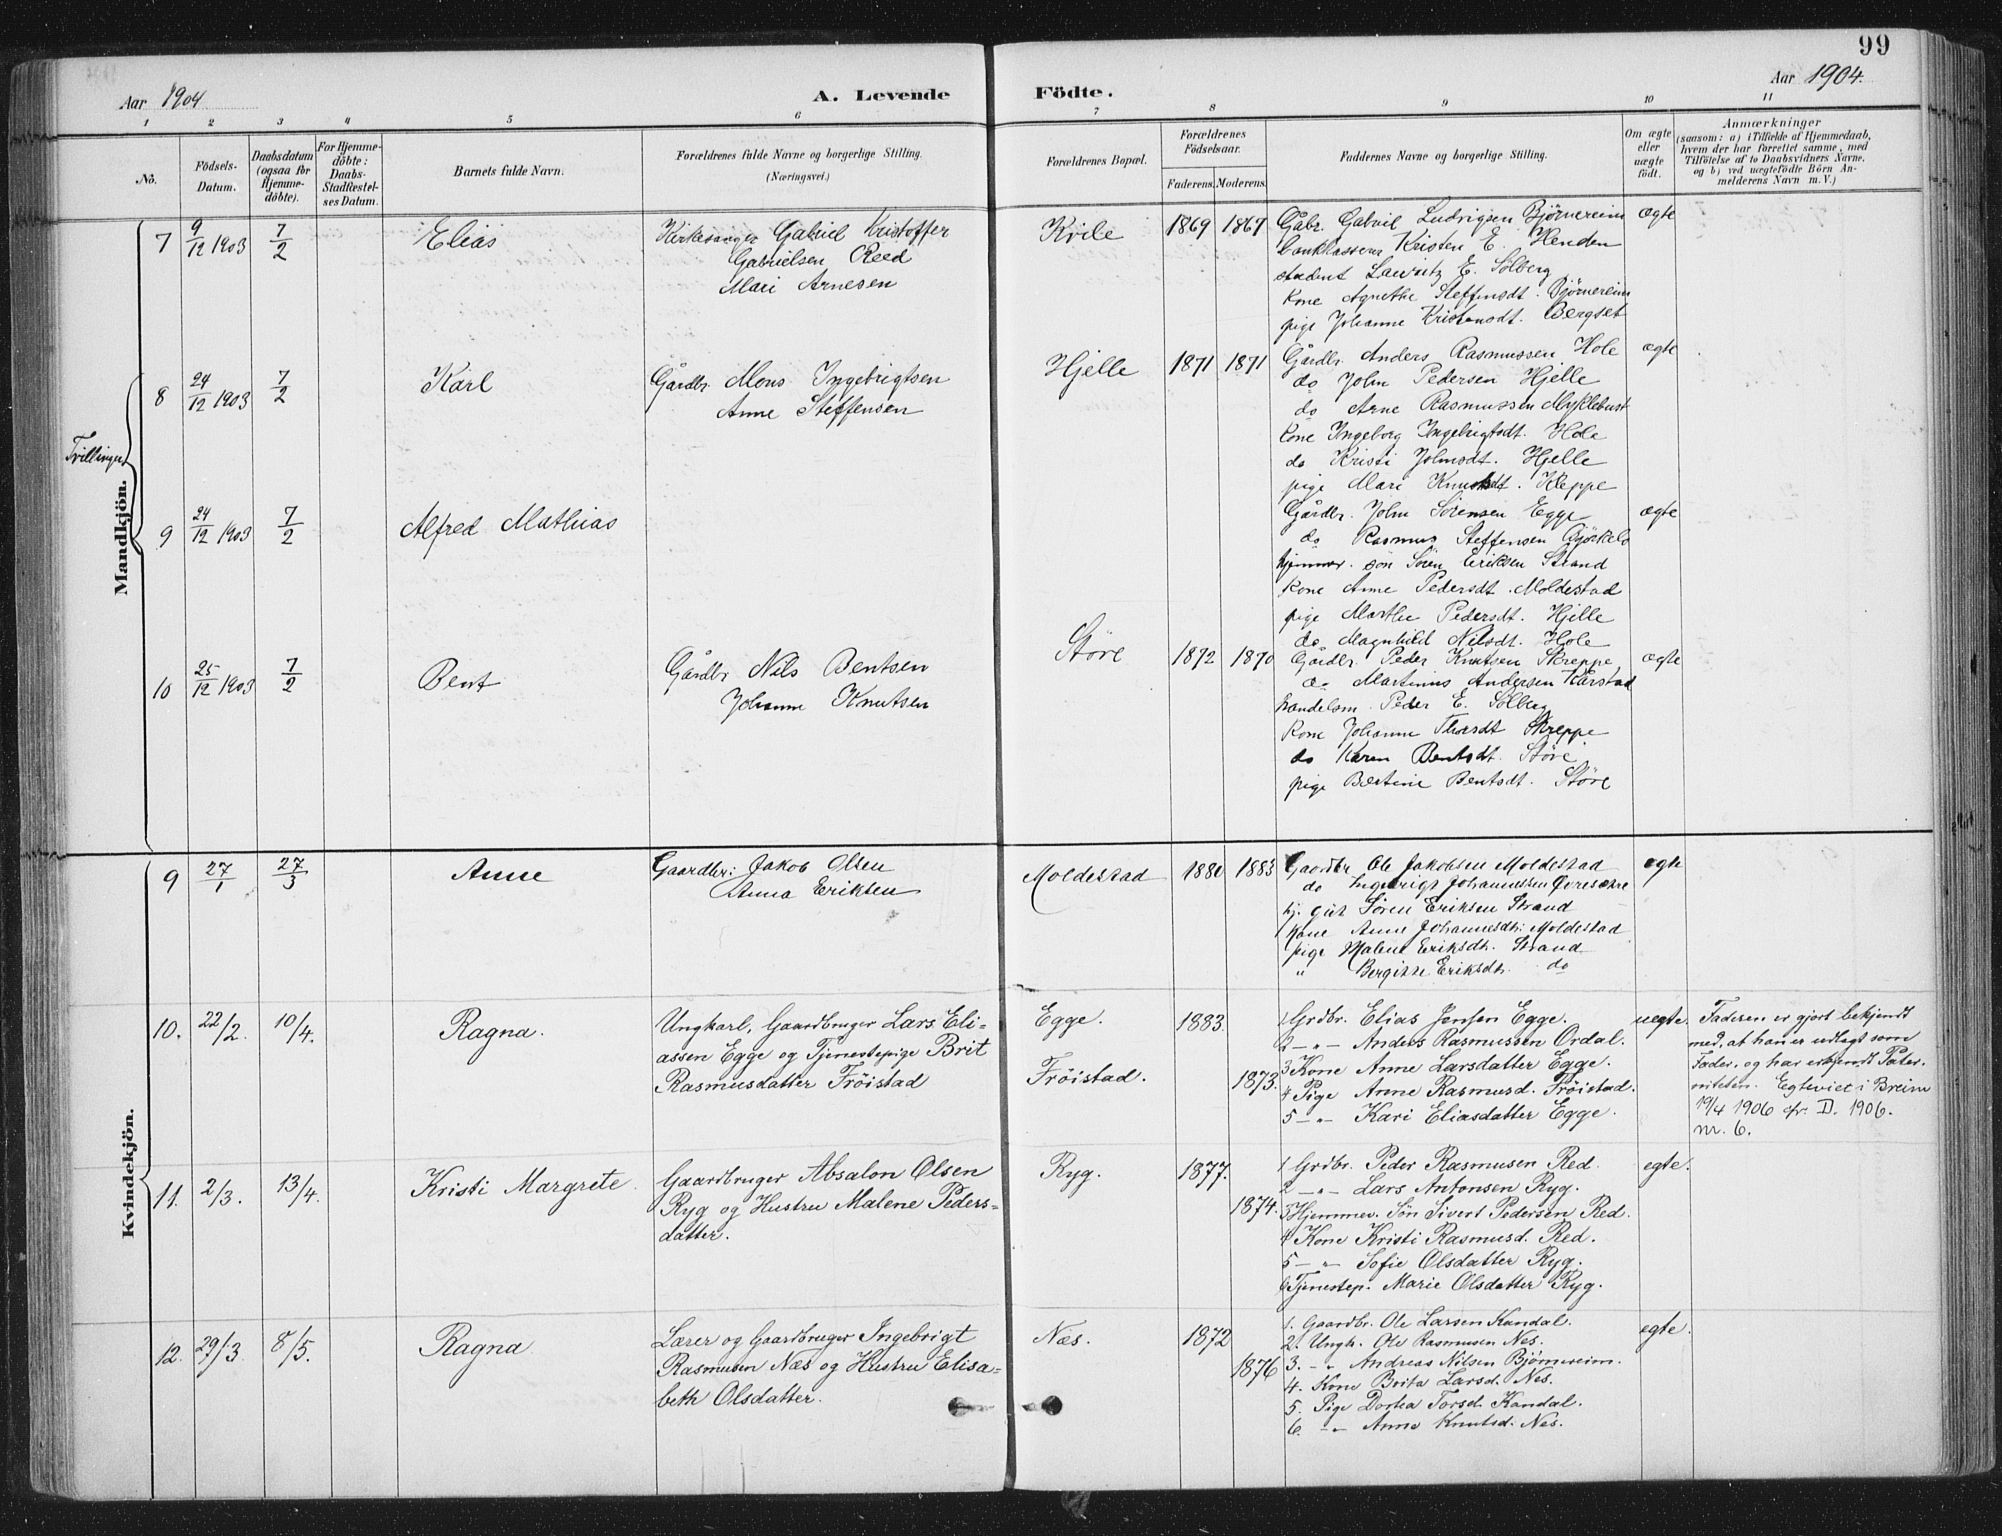 99
Aar 1904
A. Levende
Födte.
Aar 1904.
1 2 3 4 5 6 7 8 9 10 11
No.
Födsels-
Datum.
Daabsdatum
(ogsaa for
Hjemme-
döbte).
For Hjemme-
döbte:
Daabs-
Stadfæstel-
ses Datum.
Barnets fulde Navn.
Forældrenes fulde Navne og borgerlige Stilling.
(Næringsvei.)
Forældrenes Bopæl.
Forældrenes
Födselsaar.
Faderens. Moderens.
Faddernes Navne og borgerlige Stilling.
Om ægte
eller
uægte
födt.
Anmærkninger
(saasom: a) i Tilfælde af Hjemmedaab,
hvem der har forrettet samme, med
Tilföielse af to Daabsvidners Navne.
og b) ved uægtefödte Börn An-
melderens Navn m. V.)
Mandkjön.
Tvillinger
7 9/12 1903 7/2 Elias
Kirkesanger Gabriel Kristoffer
Gabrielsen Reed
Mari Arnesen
Kvile 1869 1867
Gbr. Gabriel Ludvigsen Bjørnereim
bankkasserer Kristen E. Henden
student Lauritz E. Solberg
kone Agnethe Steffensdt. Bjørnereim
pige Johanne Kristensdt. Bergset
ægte
8 24/12 1903 7/2 Karl
Gårdbr. Mons Ingebrigtsen
Anne Steffensen
Hjelle 1871 1871
Gårdbr. Anders Rasmussen Hole
do John Pedersen Hjelle
do Arne Rasmussen Myklebust
kone Ingeborg Ingebrigtsdt. Hole
do Kristi Johnsdt. Hjelle
pige Mari Knutsdt. Kleppe
ægte
9 24/12 1903 7/2 Alfred Mathias
Gårdbr. John Sørensen Egge
do Rasmus Steffensen Bjørkelo
hjemmev. søn Søren Eriksen Strand
kone Anne Pedersdt. Moldestad
pige Marthe Pedersdt. Hjelle
do Magnhild Nilsdt. Hole
ægte
10 25/12 1903 7/2 Bent
Gårdbr Nils Bentsen
Johanne Knutsen
Støre 1872 1870
Gårdbr. Peder Knutsen Skreppe
do Martinus Andersen Kårstad
handelsm. Peder E. Solberg
kone Johanne Skreppe
do Karen Bentsdt. Støre
pige Bertine Bentsdt. Støre
ægte
Kvindekjön.
9 27/1 27/3 Anne
Gaardbr: Jakob Olsen
Anna Eriksen
Moldestad 1880 1883
Gaardbr Ole Jakobsen Moldestad
do Ingebrigt Johannessen Øvresætre
hj. gut Søren Eriksen Strand
Kone Anne Johannesdtr. Moldestad
pige Malene Eriksdtr. Strand
" Bergitte Eriksdtr. do
ægte
10. 22/2. 10/4. Ragna.
Ungkarl, Gaardbruger Lars Eli-
assen Egge og Tjenestepige Brit
Rasmusdatter Frøistad
Egge.
Frøistad.
1883.
1873.
1 Grdbr. Elias Jensen Egge.
2 -"- Anders Rasmussen Ordal.
3 Kone Anne Larsdatter Egge.
4 Pige Anne Rasmusd. Frøistad.
5 -"- Kari Eliasdatter Egge.
uegte.
Faderen er gjort bekjendt
med, at han er udlagt som
Fader, og har erkjendt Pater-
niteten. Egteviet i Breim
19/4 1906 cfr. D. 1906.
nr. 6.
11. 2/3. 13/4. Kristi Margrete.
Gaardbruger Absalon Olsen
Ryg og Hustru Malene Peders-
datter.
Ryg. 1877.
1874.
1 Grdbr. Peder Rasmusen Red.
2 -"- Lars Antonsen Ryg.
3 Hjemmev. Søn Sivert Pedersen Red.
4 Kone Kristi Rasmusd. Red.
5 -"- Sofie Olsdatter Ryg.
6 Tjenestep. Marie Olsdatter Ryg.
egte.
12. 29/3. 8/5. Ragna
Lærer og Gaardbruger Ingebrigt
Rasmusen Næs og Hustru Elisa-
beth Olsdatter.
Næs. 1872
1876
1. Gaardbr. Ole Larsen Kandal.
2. Ungk. Ole Rasmusen Nes.
3. -"- Andreas Nilsen Bjørnereim.
4. Kone Brita Larsd. Nes.
5. Pige Dortea Torsd. Kandal.
6. -"- Anne Knutsd. Nes.
egte.